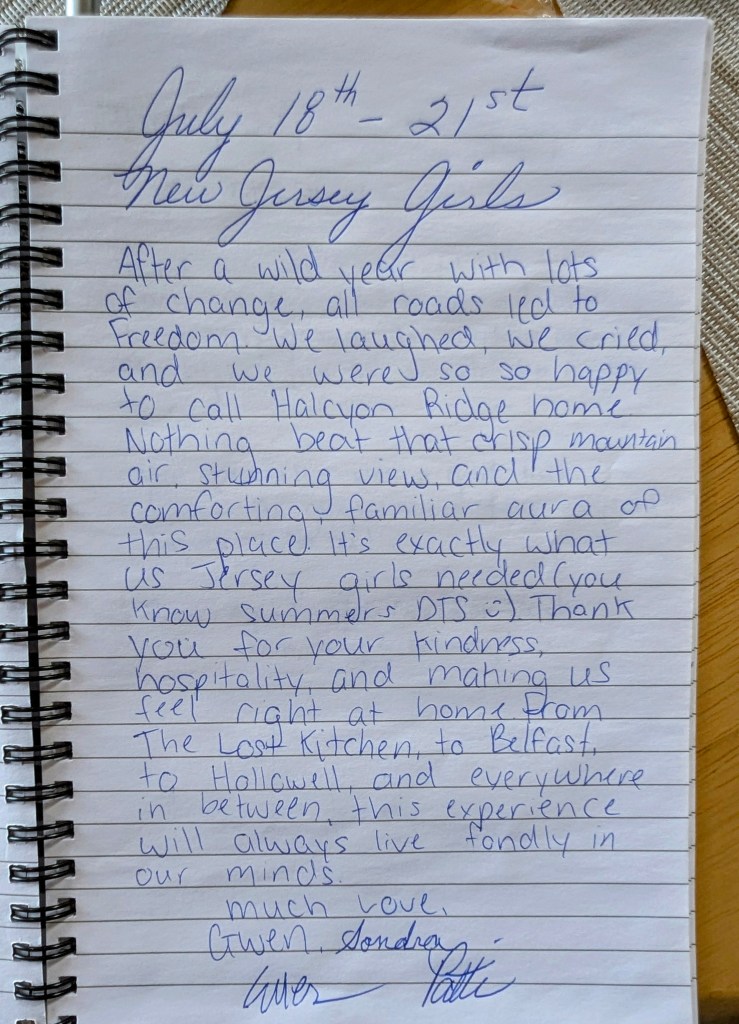 July 18th - 21st
New Jersey Girls
After a wild year with lots
of change, all roads led to
Freedom. We laughed, we cried,
and we were so so happy
to call Halcyon Ridge home
Nothing beat that crisp mountain
air, stunning view, and the
comforting, familiar aura of
this place. It's exactly what
us Jersey girls needed (you
know summers DTS :). Thank
you for your kindness,
hospitality, and making us
feel right at home. From
The Lost Kitchen, to Belfast,
to Hollowell, and everywhere
in between, this experience
will always live fondly in
our minds.
much love,
Gwen, Sondra,
Patti